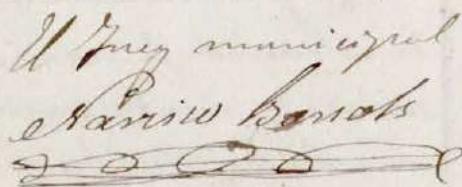 El Juez municipal
Narciso Bonols